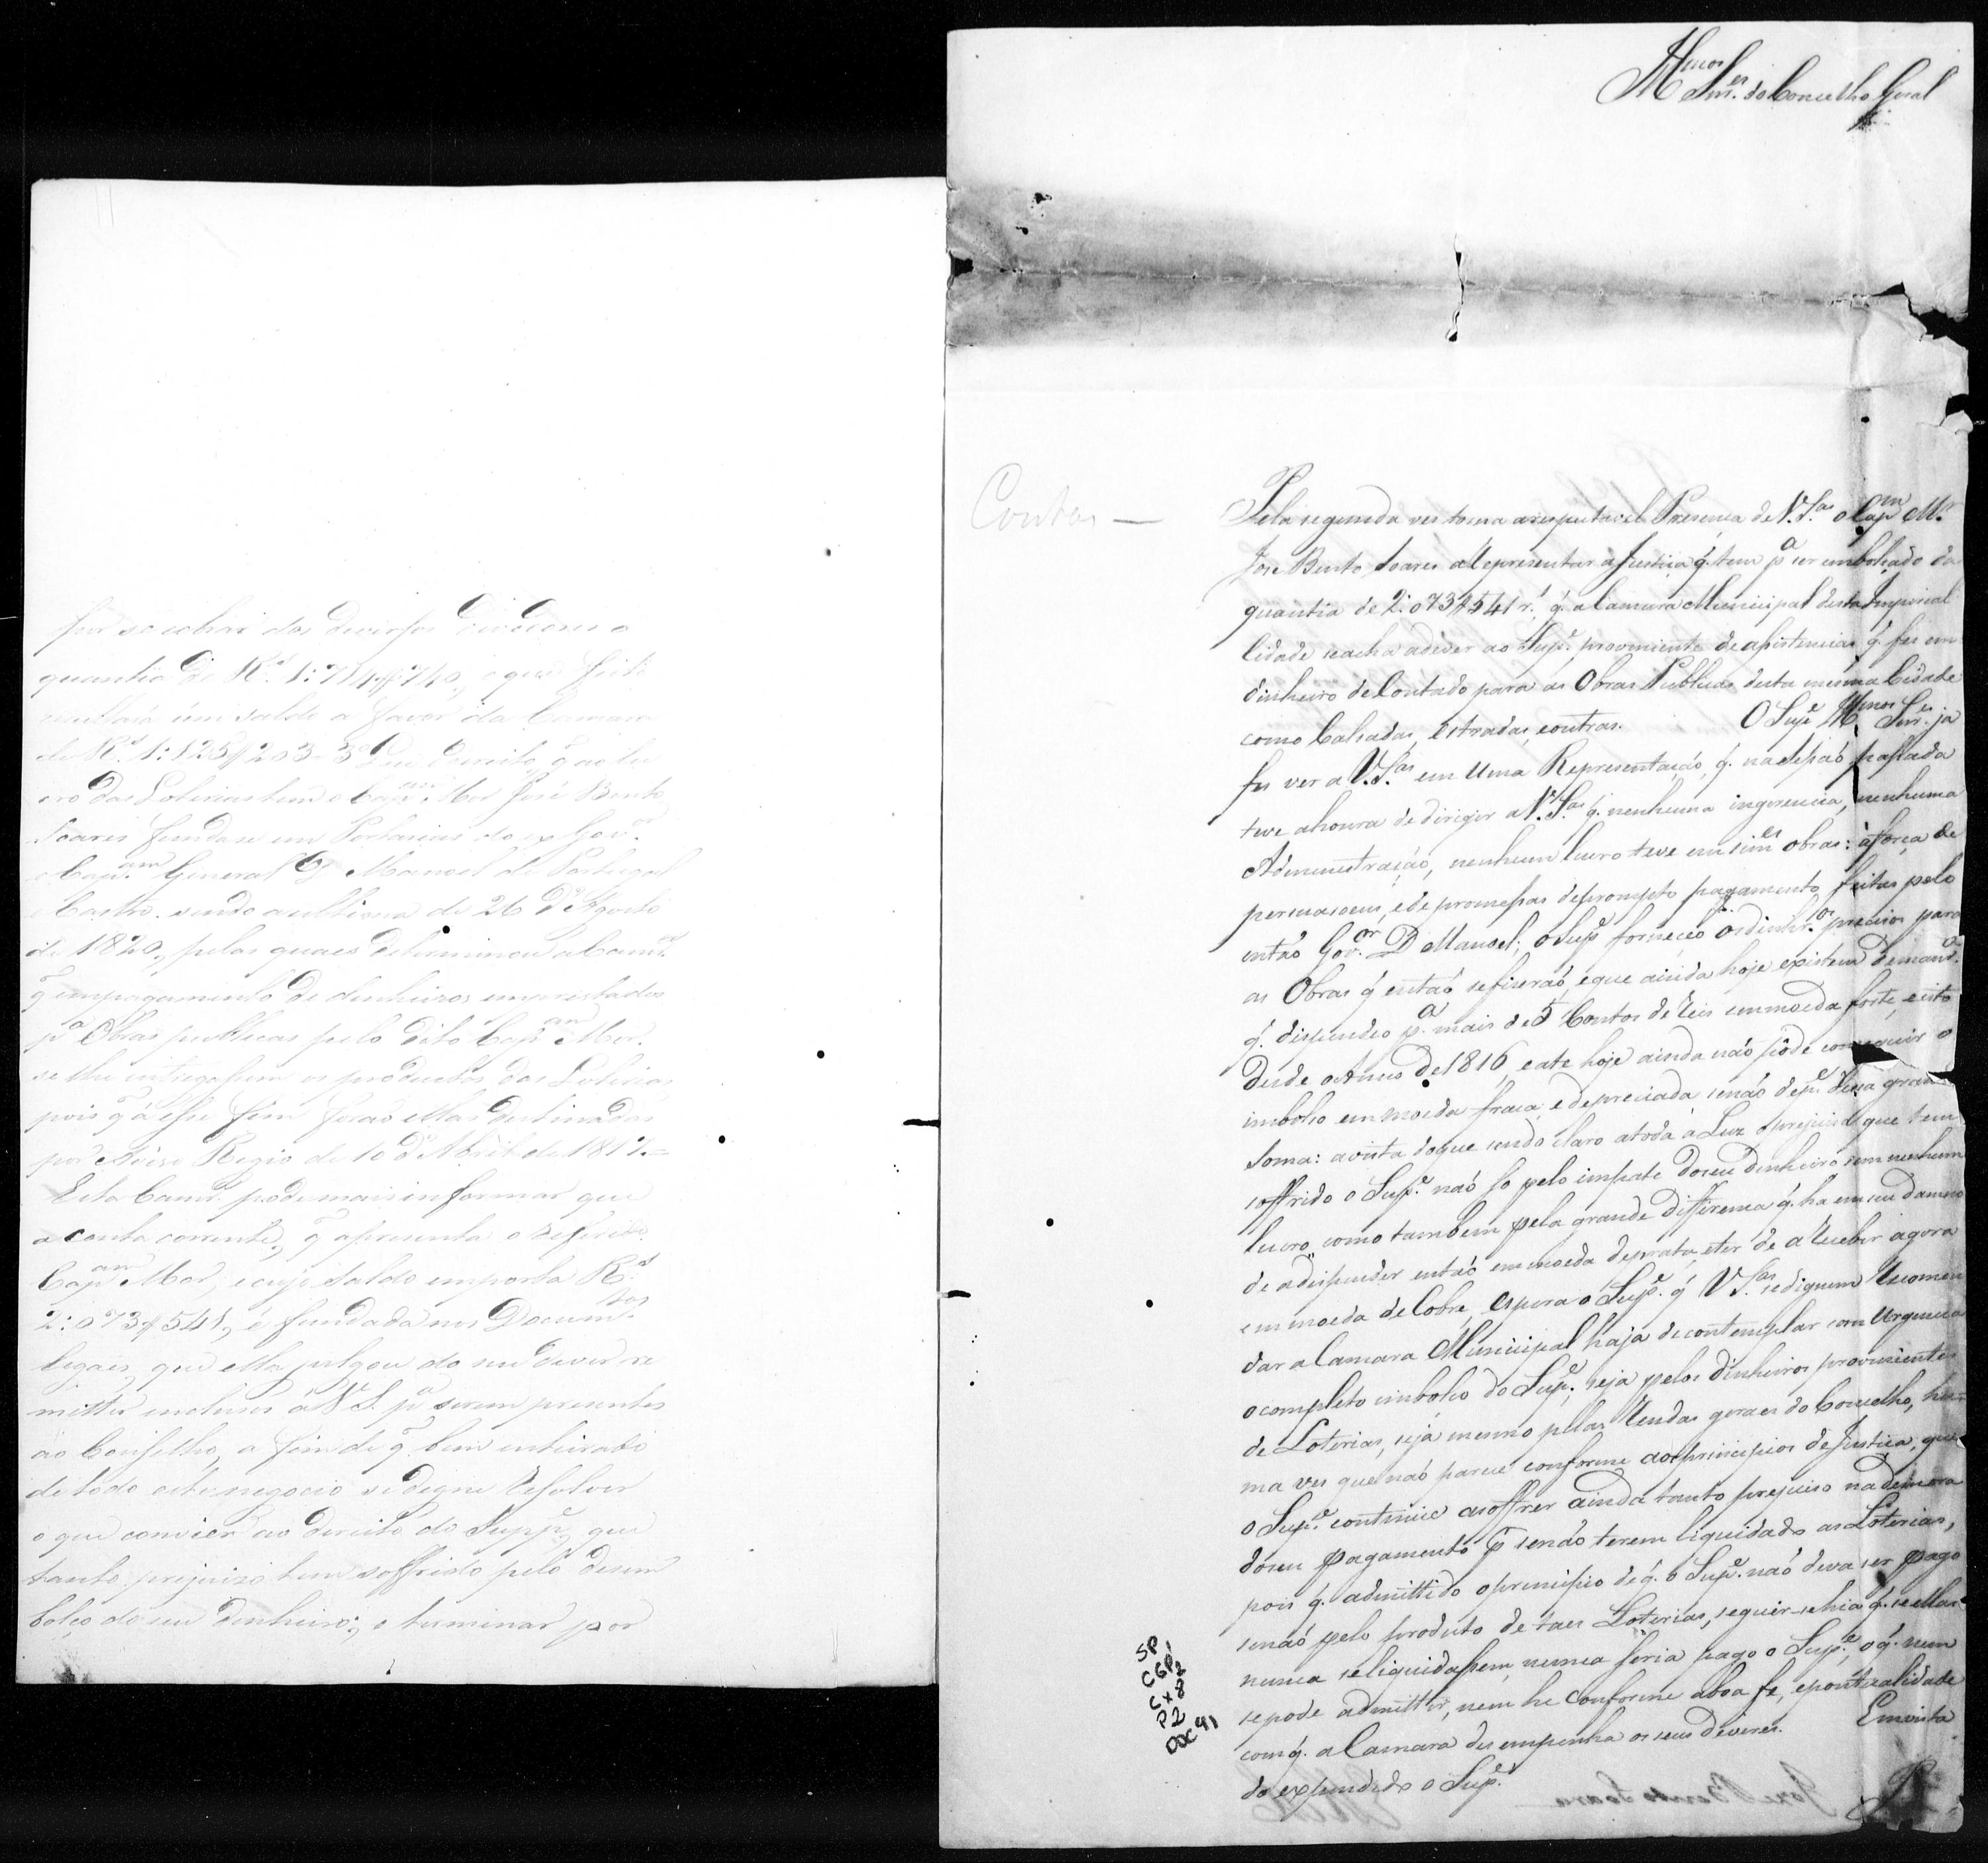 por se cobrar dos diversos devedores a
quantia de R.s 1:714$740, o que feito
resultará um saldo a favor da Camara
de R.s 1:125$203-3 O direito q̃ ao lu
cro das Loterias tem o Cap.am Mor José Bento
Soares funda-se em Portarias do ex Gov.or
e Cap.am General D Manoel de Portugal
e Castro, sendo a ultima de 26 d'Agosto
de 1820, pelas quaes determinou a Cam.ra
q̃ em pagamento de dinheiros emprestados
p.a Obras publicas pelo dito Cap.am Mor.
se lhe entregassem os productos das Loterias
pois q̃ á esse fim forão ellas destinadas
por Aviso Regio de 10 d'Abril de 1817.=
Esta Camr.a pode mais informar que
a conta corrente, q̃ apresenta o referido
Cap.am Mor, e cujo saldo emporta R.s
2:073$541, é fundada nos Docum.tos
legaes, que ella julgou do seu dever re
metter inclusos á V S. p.a serem presentes
ao Conselho, a fim de q̃ bem inteirado
de todo este negocio se digne resolver
o que convier ao direito do Supp.e, que
tanto prejuizo tem soffrido pelo desem
bolço do seu dinheiro; e terminar por
Ill.mos Snr.es do Concelho Geral
Contas —
Pela segunda ves torna a respeitavel Presença de V. S.as o Cap.m M.r
Jose Bento Soares a Representar a Justiça q̃. tem p.a ser embolçado da
quantia de 2:073$541 r.s q̃. a Camara Municipal desta Imperial
Cidade se acha a dever ao Sup.e, proveniente de asistencias q̃. fes em
dinheiro de Contado para as Obras Publicas desta mesma Cidade
como Calsadas, Estradas, e outras. O Sup.e Ill.mos Snr.es ja
fes ver a V.S.as em uma Representação, q̃. na Sesão passada
teve a honra de dirigir a V.S.as q̃. nenhuma ingerencia, nenhuma
Adeministração, nenhum lucro teve em sim.es obras: á força de
persuasoens, e de promessas de prompto pagamento, feitas pelo
então Gov.or D Manoel; o Sup.e forneceo os dinhr.os precisos para
as Obras q̃ então se fiserão, e que ainda hoje existem
q̃. dispendeo p.a mais de 5 Contos de reis em moeda forte, e isto
desde o Anno de 1816, e ate hoje ainda não pôde conseguir o
imbolso em moeda fraca, e depreciada senão de p.e dessa grande
Soma: a vista do que sendo claro a toda a Luz o prejuiso que tem
soffrido o Sup.e não so pelo impate do seu dinheiro sem nenhum
lucro, como tambem pela grande differensa q̃. ha em seu damno
de a dispender então em moeda de prata, e ter de a receber agora
em moeda de Cobre, espera o Sup.e q̃ V S.as se dignem recomen
dar a Camara Municipal haja de contemplar com urgencia
o completo imbolso do Sup.e, seja pelos dinheiros provenientes
de Loterias, seja mesmo pellas rendas geraes do Concelho, hu
ma ves que não parece conforme aos principios de justiça, que
o Sup.e continúe a soffrer ainda tanto prejuiso na demora
do seu pagamento p̃ senão terem liquidado as Loterias,
pois q̃. admittido o principio de q̃. o Sup.e não deva ser pago
senão pelo produto de taes Loterias, seguir-se hia q̃. se ellas
nunca se liquidassem, nunca seria pago o Sup.e, o q̃. nem
se pode admittir, nem he conforme a boa fe, e pontualidade
com q̃. a Camara desempenha os seus deveres. Em vista
do expendido o Sup.e
SP
CGP1
Cx8
P2
DOC 41